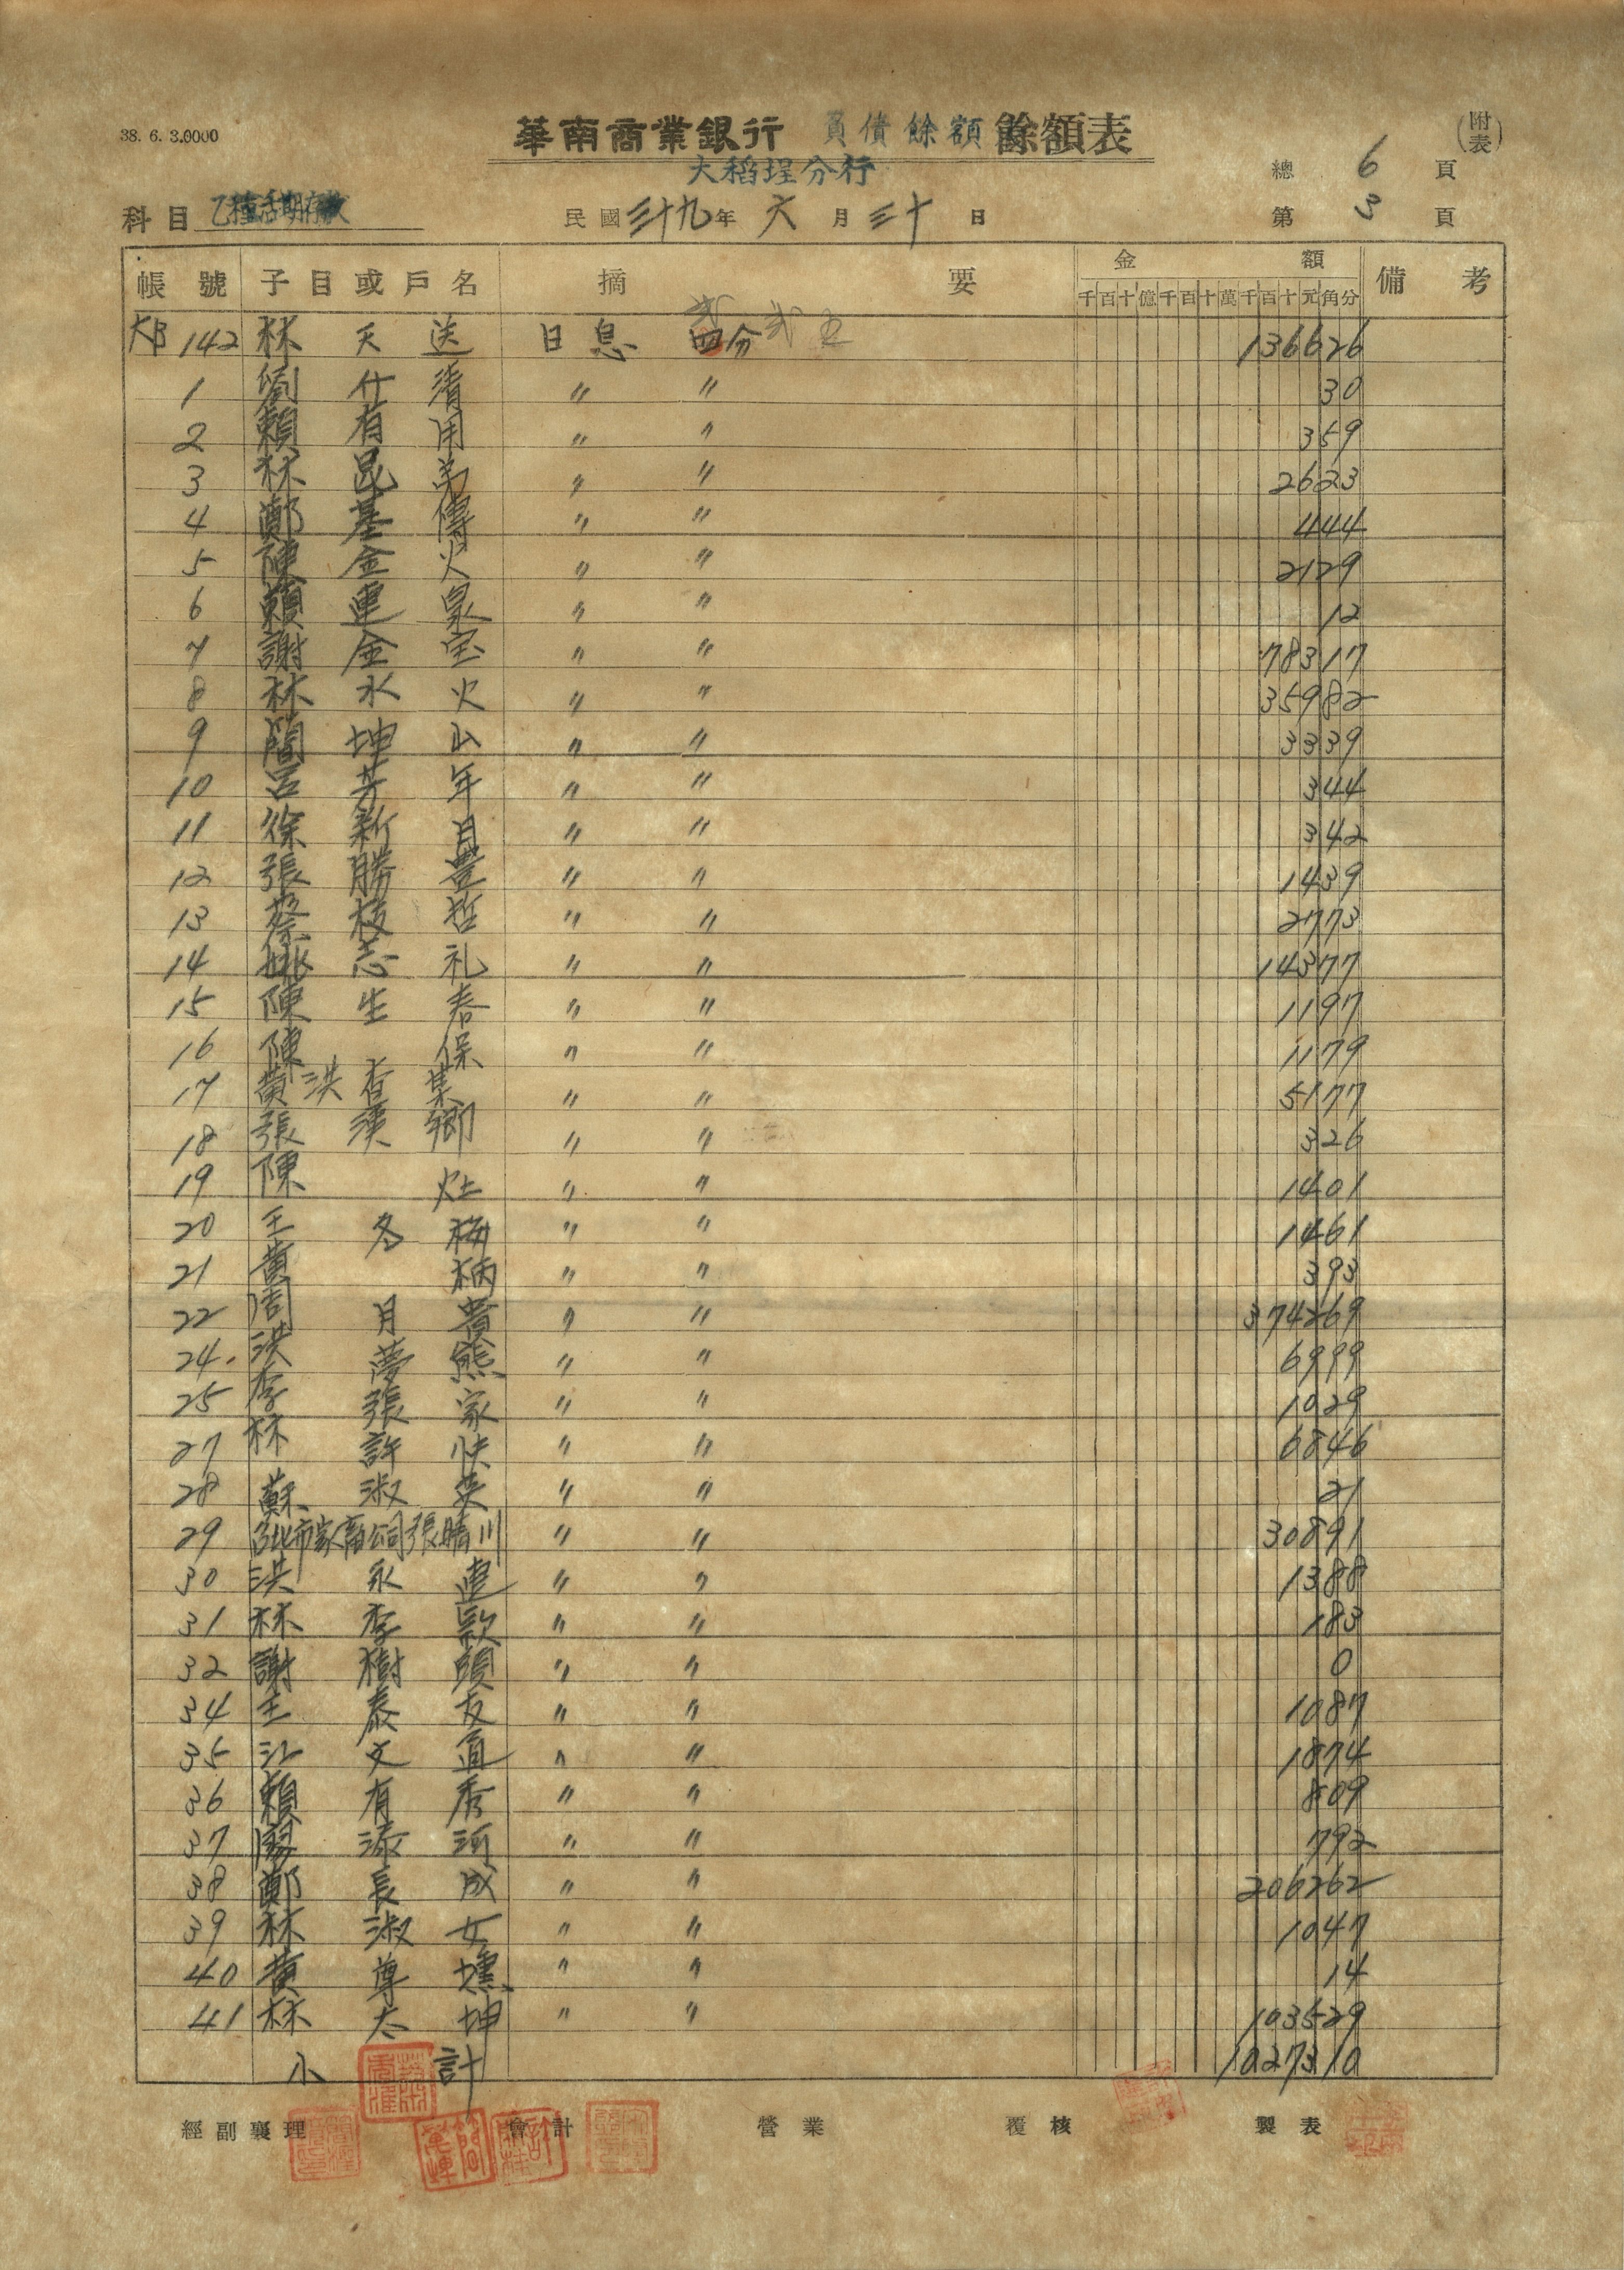 38. 6. 3.0000
華南商業銀行 負債餘額 餘額表
(附表)
大稻埕分行
總 6 頁
科目 乙種活期存款
民國 三十九 年 六 月 三十 日
第 3 頁
帳號 子目或戶名 摘要 金額 備考
千百十億千百十萬千百十元角分
142 林天送 日息 四分 136626
1 劉仕清 〃 〃 30
2 賴有用 〃 〃 359
3 林昆弟 〃 〃 2623
4 鄭基傳 〃 〃 444
5 陳金火 〃 〃 2129
6 賴連泉 〃 〃 12
7 謝金宝 〃 〃 78317
8 林水火 〃 〃 35982
9 簡坤山 〃 〃 3339
10 呂芳年 〃 〃 344
11 徐新月 〃 〃 342
12 張勝豊 〃 〃 1439
13 蔡枝哲 〃 〃 2773
14 姚志礼 〃 〃 14377
15 陳生春 〃 〃 1197
16 陳保 〃 〃 1179
17 黃洪杏某 〃 〃 5177
18 張漢卿 〃 〃 326
19 陳灶 〃 〃 1401
20 王冬梅 〃 〃 1461
21 黃柄 〃 〃 393
22 周月貴 〃 〃 374269
24. 洪夢熊 〃 〃 6999
25 李張家 〃 〃 1029
27 林許快 〃 〃 6846
28 蘇淑英 〃 〃 21
29 台北市家畜公司張晴川 〃 〃 30891
30 洪永連 〃 〃 1388
31 林李款 〃 〃 183
32 謝樹頭 〃 〃 0
34 王泰友 〃 〃 1087
35 江文直 〃 〃 1874
36 賴有秀 〃 〃 809
37 廖添河 〃 〃 792
38 鄭長成 〃 〃 206262
39 林淑女 〃 〃 1047
40 黃尊壎 〃 〃 14
41 林太坤 〃 〃 103529
小計 1027310
經副襄理 會計 營業 覆核 製表